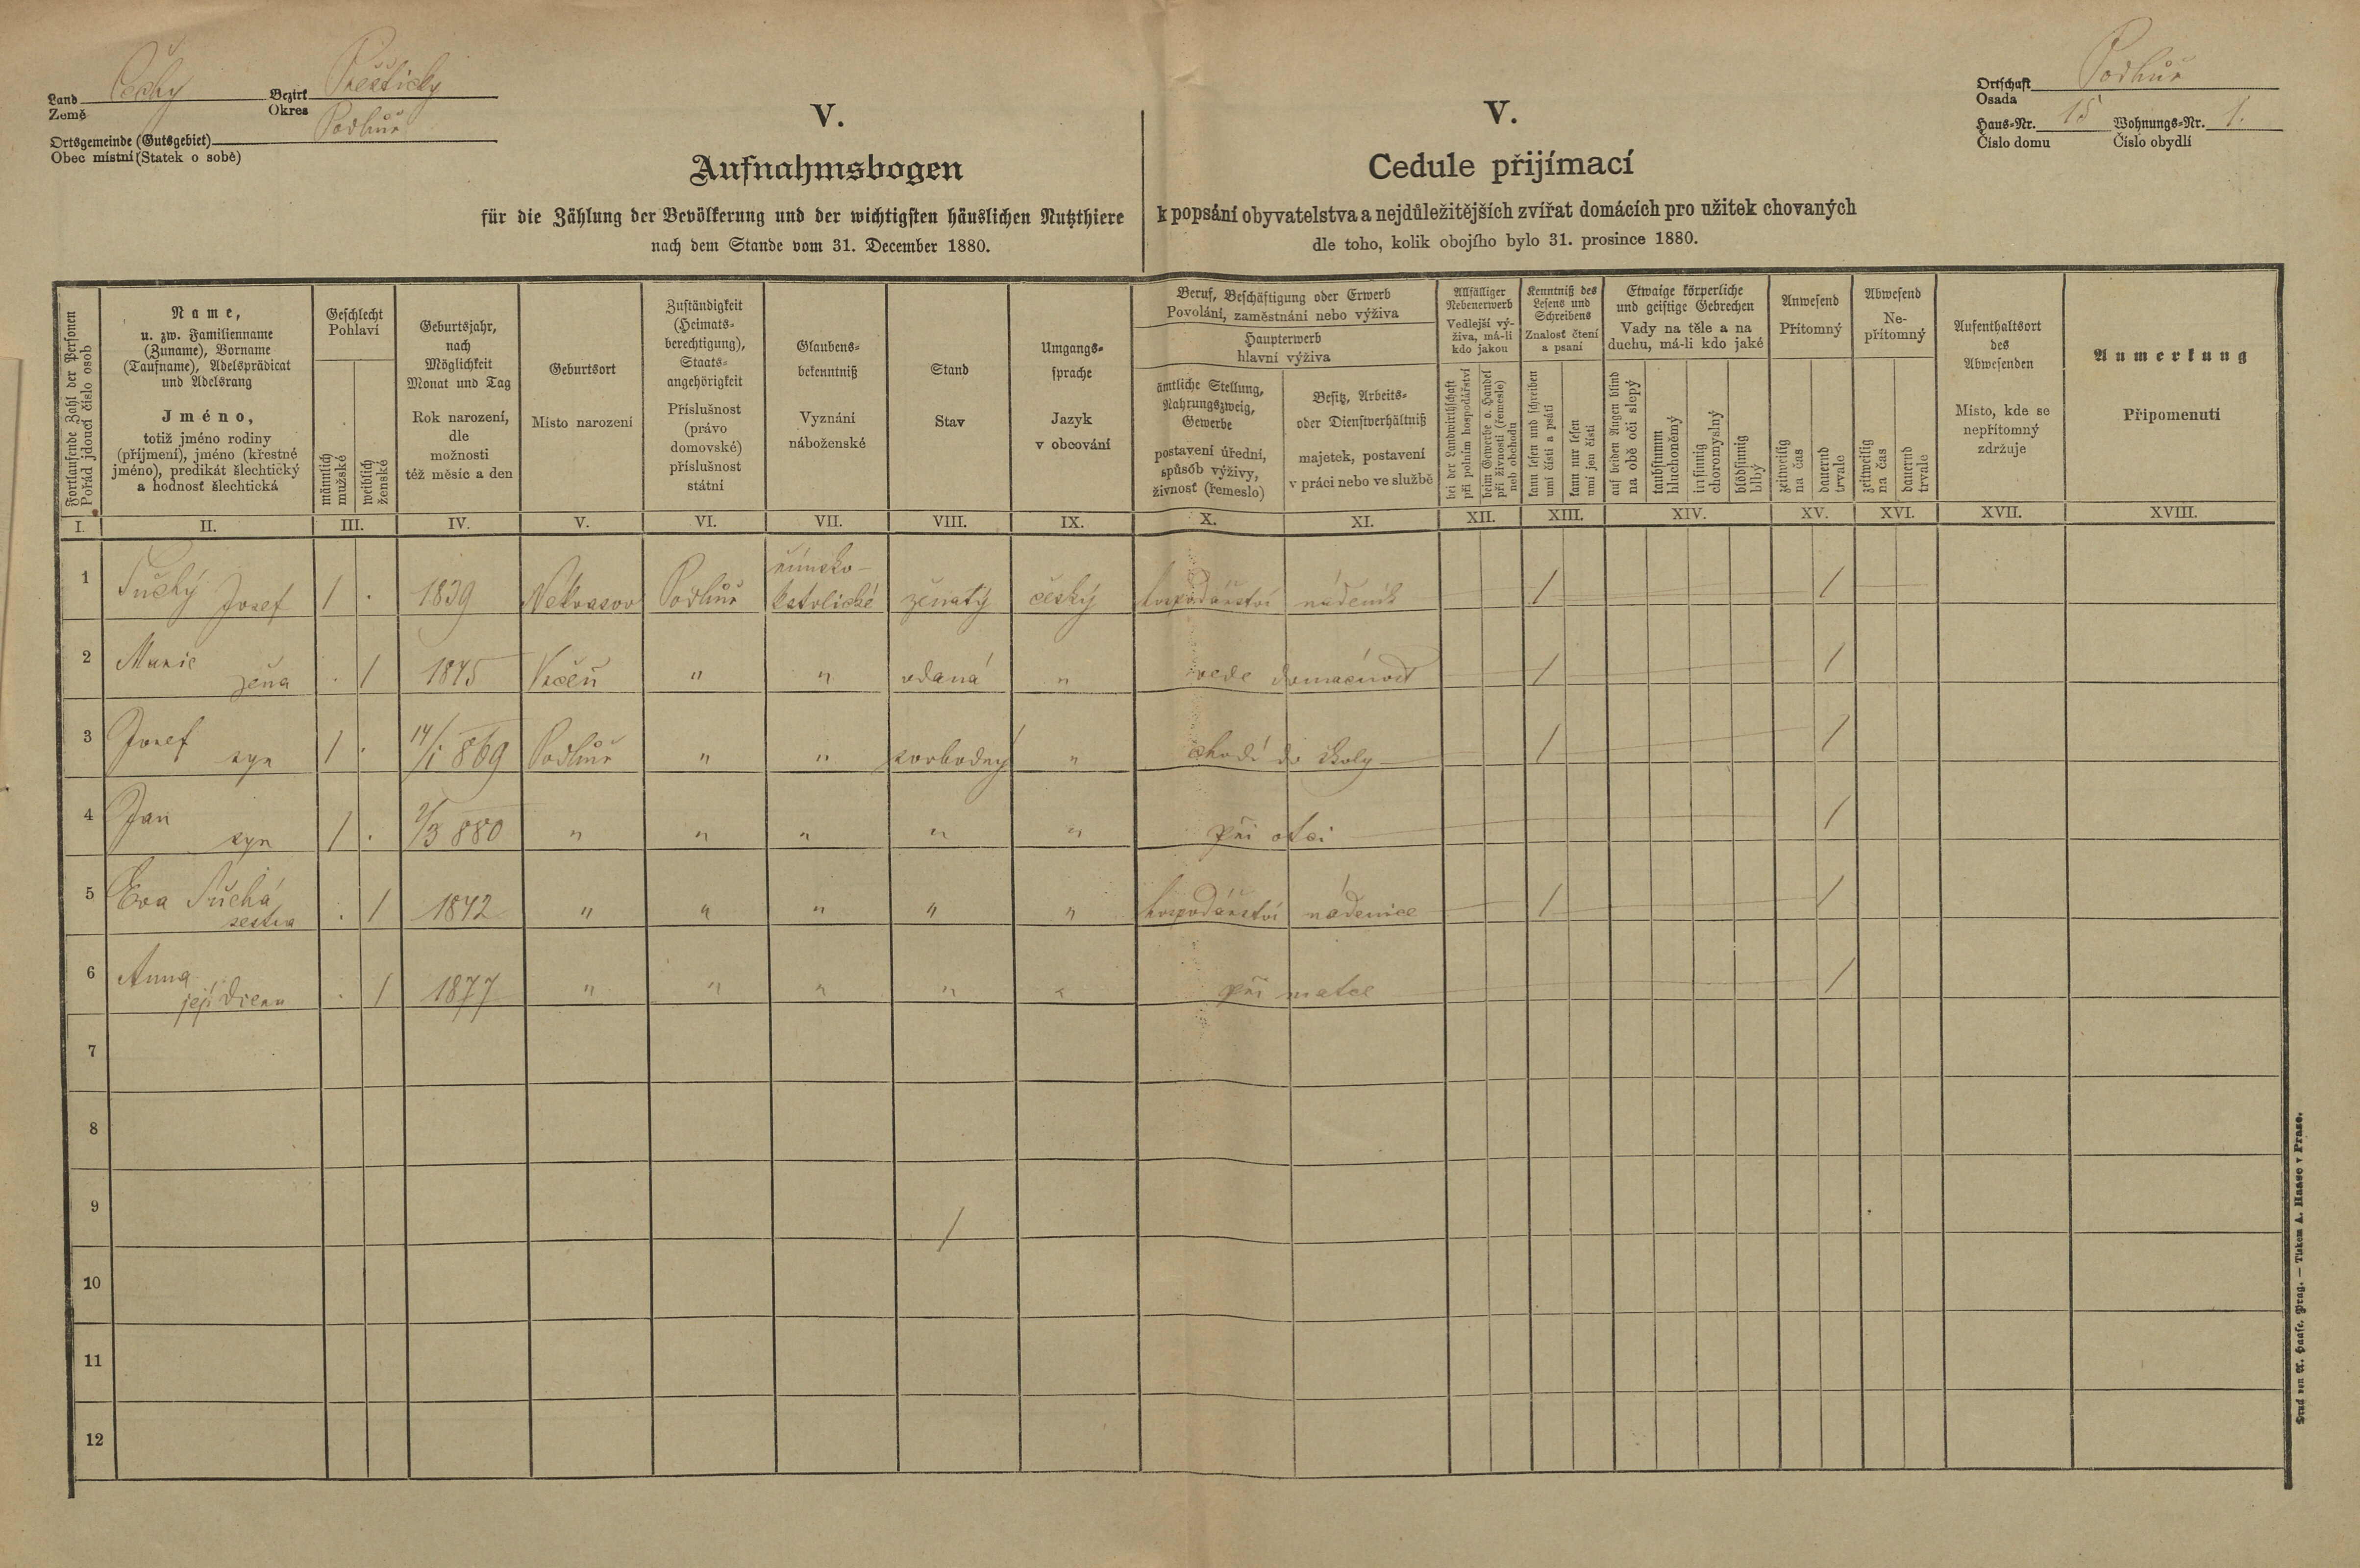 Land Čechy Bezirk Přeštický
Země Okres
Ortsgemeinde (Gutsgebiet) Podhůř
Obec místní (Statek o sobě)
Ortschaft Podhůř
Osada
Haus-Nr. 15 Wohnungs-Nr. 1.
Číslo domu Číslo obydlí
V.
Aufnahmsbogen
für die Zählung der Bevölkerung und der wichtigsten häuslichen Nutzthiere
nach dem Stande vom 31. December 1880.
V.
Cedule přijímací
k popsání obyvatelstva a nejdůležitějších zvířat domácích pro užitek chovaných
dle toho, kolik obojího bylo 31. prosince 1880.
Fortlaufende Zahl der Personen
Pořád jdoucí číslo osob
Name,
u. zw. Familienname
(Zuname), Vorname
(Taufname), Adelsprädicat
und Adelsrang
Jméno,
totiž jméno rodiny
(příjmení), jméno (křestné
jméno), predikát šlechtický
a hodnost šlechtická
Geschlecht
Pohlaví
männlich
mužské
weiblich
ženské
Geburtsjahr,
nach
Möglichkeit
Monat und Tag
Rok narození,
dle
možnosti
též měsíc a den
Geburtsort
Místo narození
Zuständigkeit
(Heimats-
berechtigung),
Staats-
angehörigkeit
Příslušnost
(právo
domovské)
příslušnost
státní
Glaubens-
bekenntniß
Vyznání
náboženské
Stand
Stav
Umgangs-
sprache
Jazyk
v obcování
Beruf, Beschäftigung oder Erwerb
Povolání, zaměstnání nebo výživa
Haupterwerb
hlavní výživa
ämtliche Stellung,
Nahrungszweig,
Gewerbe
postavení úřední,
způsob výživy,
živnost (řemeslo)
Besitz, Arbeits-
oder Dienstverhältniß
majetek, postavení
v práci nebo ve službě
Allfälliger
Nebenerwerb
Vedlejší vý-
živa, má-li
kdo jakou
bei der Landwirthschaft
při polním hospodářství
beim Gewerbe o. Handel
při živnosti (řemeslo)
neb obchodu
Kenntniß des
Lesens und
Schreibens
Znalost čtení
a psaní
kann lesen und schreiben
umí čísti a psáti
kann nur lesen
umí jen čísti
Etwaige körperliche
und geistige Gebrechen
Vady na těle a na
duchu, má-li kdo jaké
auf beiden Augen blind
na obě oči slepý
taubstumm
hluchoněmý
irrsinnig
choromyslný
blödsinnig
blbý
Anwesend
Přítomný
zeitweilig
na čas
dauernd
trvale
Abwesend
Ne-
přítomný
zeitweilig
na čas
dauernd
trvale
Aufenthaltsort
des
Abwesenden
Místo, kde se
nepřítomný
zdržuje
Anmerkung
Připomenutí
I. II. III. IV. V. VI. VII. VIII. IX. X. XI. XII. XIII. XIV. XV. XVI. XVII. XVIII.
1 Suchý Josef / . 1839 Nekvasov Podhůř římsko-katolické ženatý český hospodářství nádeník / /
2 Marie žena . / 1845 Vrčeň " " vdaná " vede domácnost / /
3 Josef syn / . 14/1 869 Podhůř " " svobodný " chodí do školy / /
4 Jan syn / . 2/3 880 " " " " " při otci /
5 Eva Suchá sestra . / 1842 " " " " " hospodářství nádenice / /
6 Anna její dcera . / 1877 " " " " " při matce /
7
8
9 /
10
11
12
Druck von A. Haase, Prag. — Tiskem A. Haase v Praze.